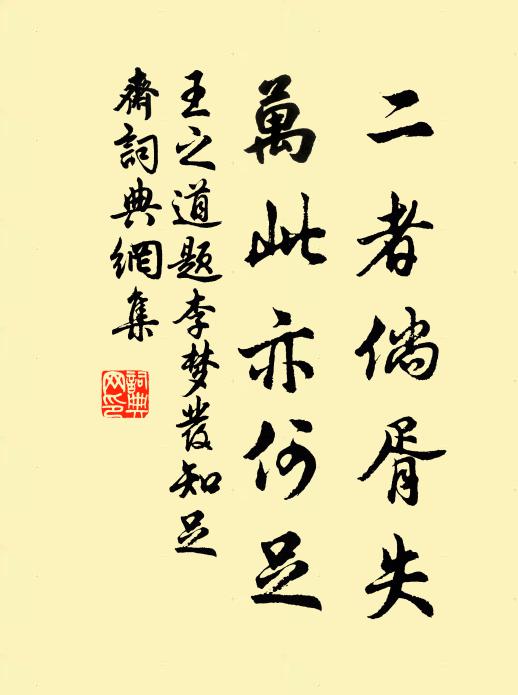 二者倘胥失
萬此亦何足
王之道題李梦發知足
齋詞典網集
詞典
网印